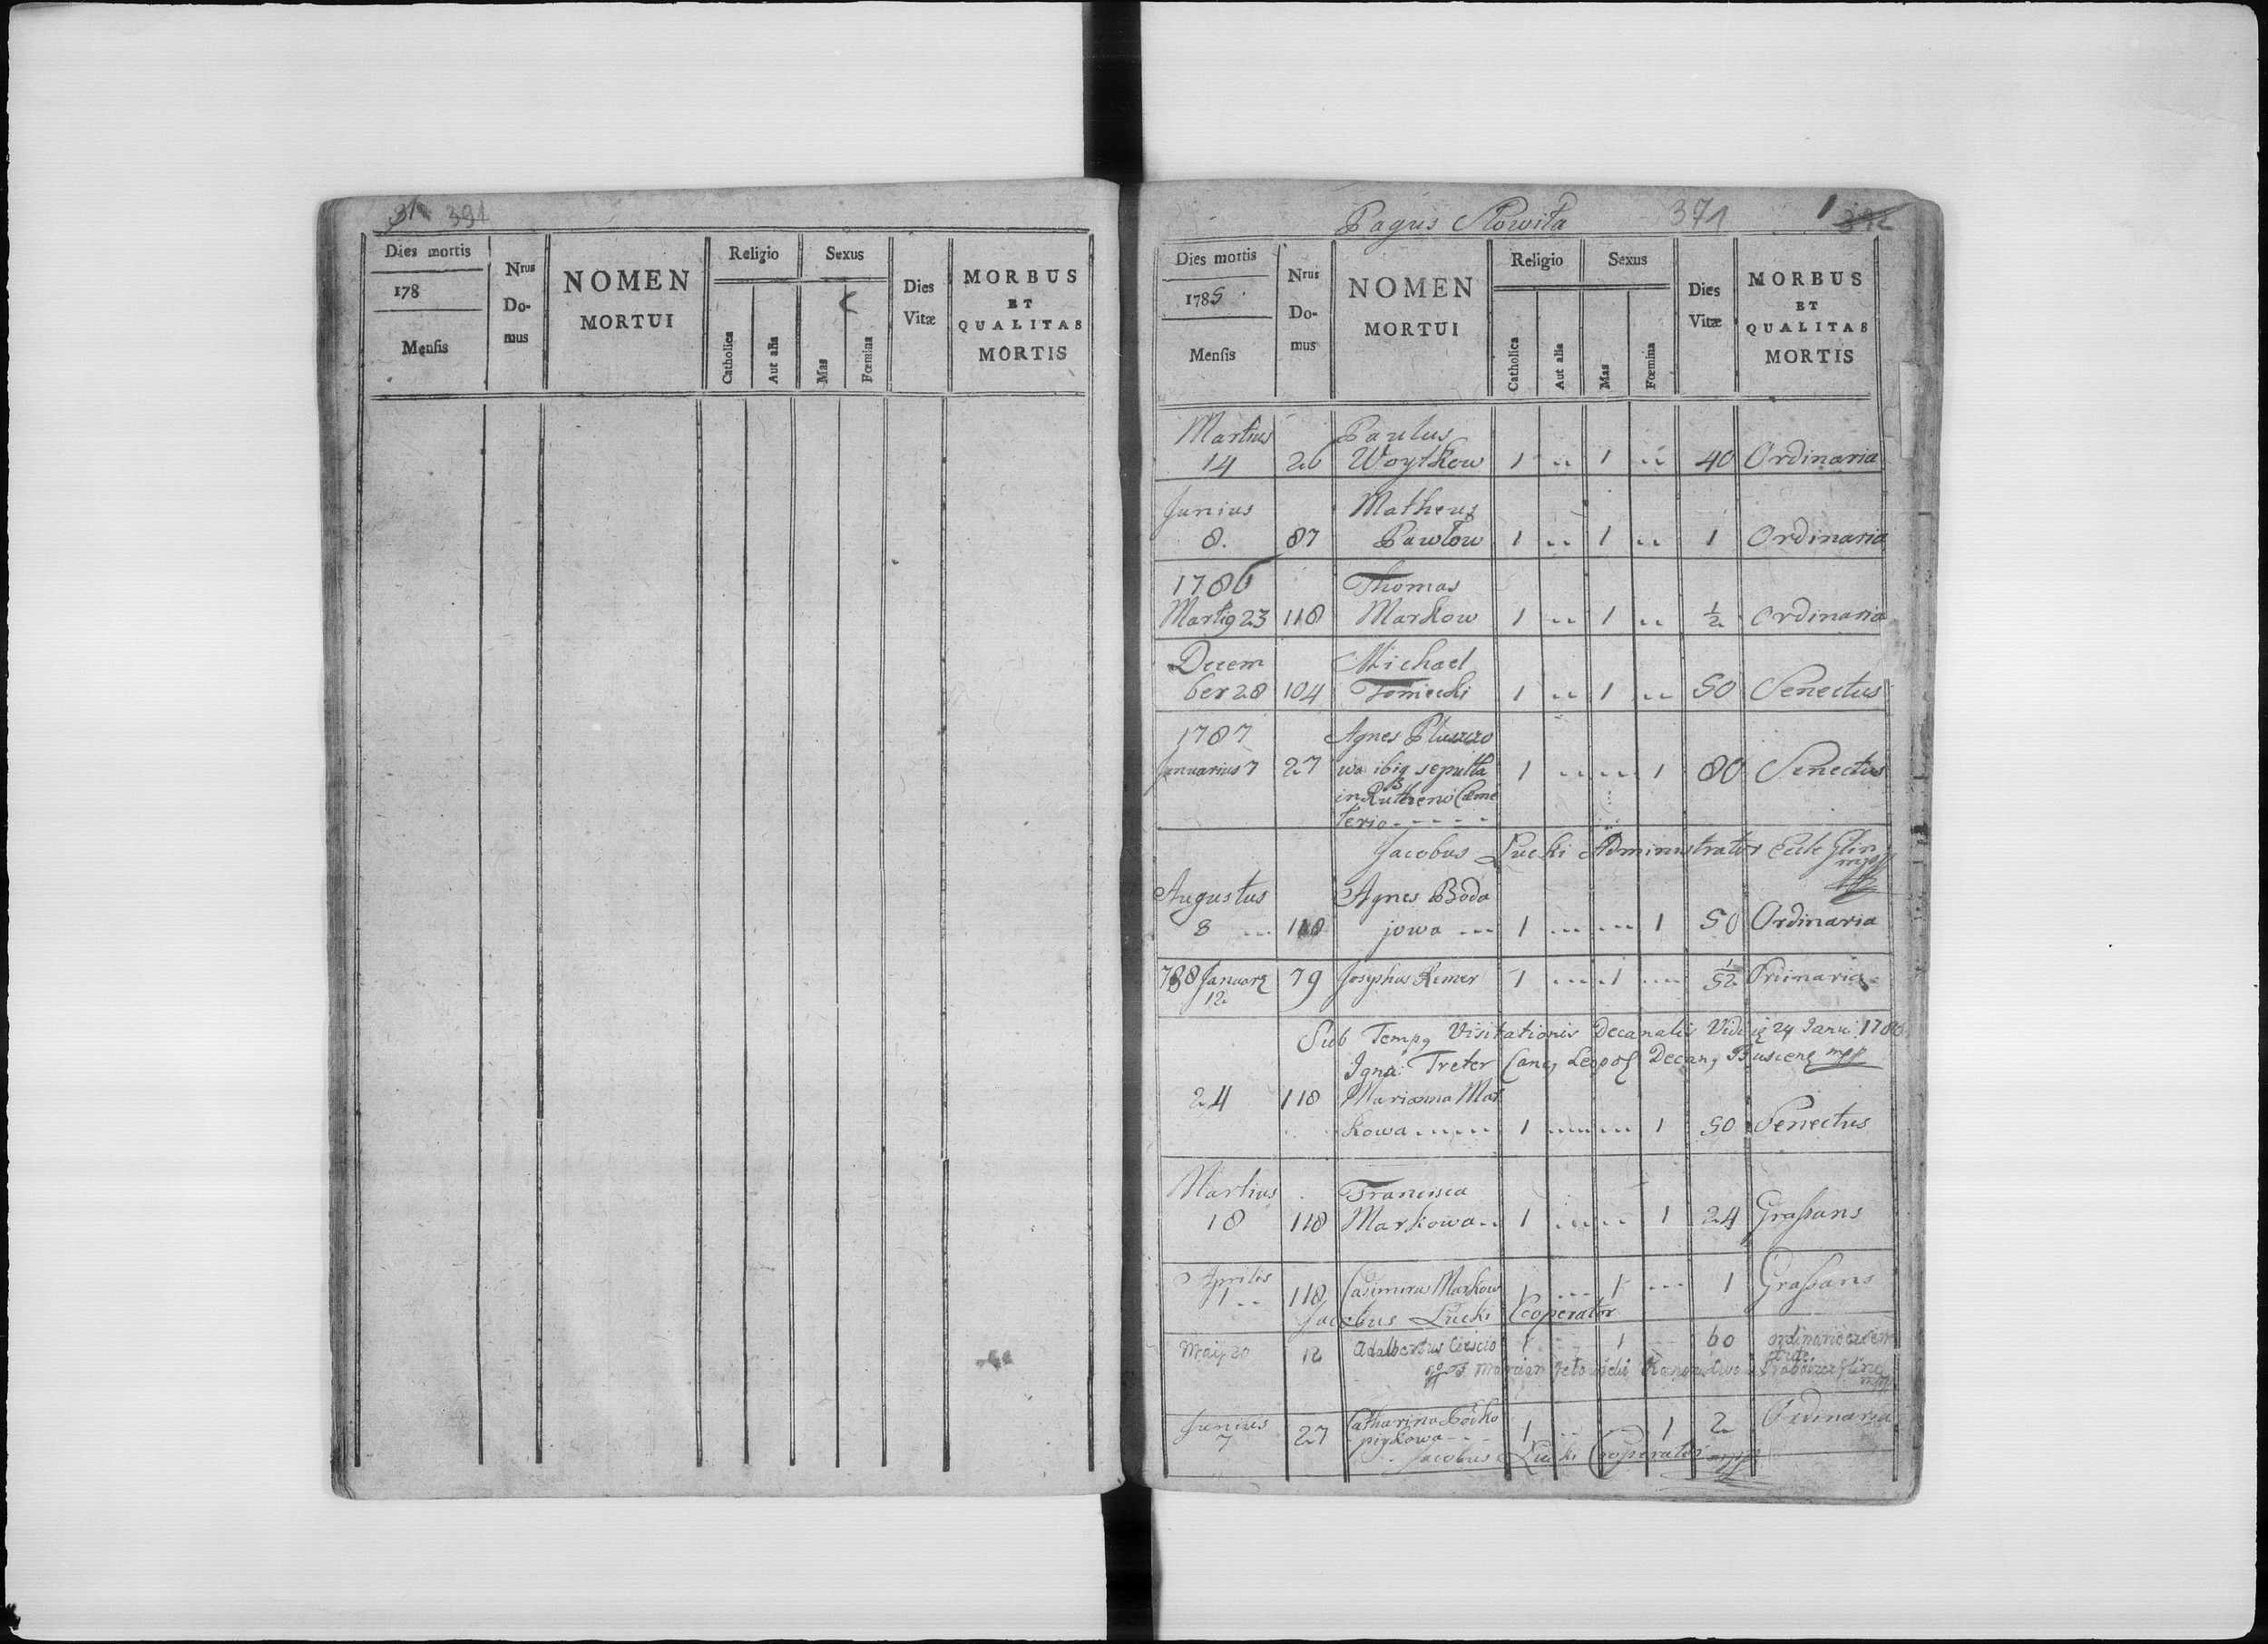 391
Dies mortis
178
Mensis
Nrus
Do-
mus
NOMEN
MORTUI
Religio
Catholica
Aut alia
Sexus
Mas
Fœmina
Dies
Vitæ
MORBUS
ET
QUALITAS
MORTIS
Pagus Slowita 371 1
Dies mortis
1785
Mensis
Nrus
Do-
mus
NOMEN
MORTUI
Religio
Catholica
Aut alia
Sexus
Mas
Fœmina
Dies
Vitæ
MORBUS
ET
QUALITAS
MORTIS
Martius Paulus
14 26 Woytkow 1 .. 1 .. 40 Ordinaria
Junius Matheus
8. 87 Pawlow 1 .. 1 .. 1 Ordinaria
1786 Thomas
Martig 23 118 Markow 1 .. 1 .. ½ Ordinaria
Decem Michael
ber 28 104 Tomiecki 1 .. 1 .. 50 Senectus
1787 Agnes
Januarius 7 27 wa ibiq sepulta 1 ... ... 1 80 Senectus
in Rutheno Cæme
terio - - - - -
Jacobus Lucki Administrator Eccle Glin
mpp
Augustus Agnes Boda
8 ... 118 jowa --- 1 ... ... 1 50 Ordinaria
788 Januarz 79 Josephus Remer 1 ... 1 ... 1/52 Ordinaria
12
Sub Tempq Visitationis Decanalis Vidi 24 Janu: 178
Igna: Treter Canq Leopol Decanq Busceng mpp
24 118 Marianna Mar
kowa ...... 1 ... ... 1 50 Senectus
Martius Francisca
18 118 Markowa .. 1 ... ... 1 24 Grassans
Aprilis
1 .. 118 Casimirus Markow 1 ... 1 ... 1 Grassans
Jacobus Lucki Cooperator
Maij 20 12 Adalbertus 1 1 60
Junius Catharina
7 27 pigkowa 1 .. 1 2 Ordinaria
Jacobus Lucki Cooperator mpp